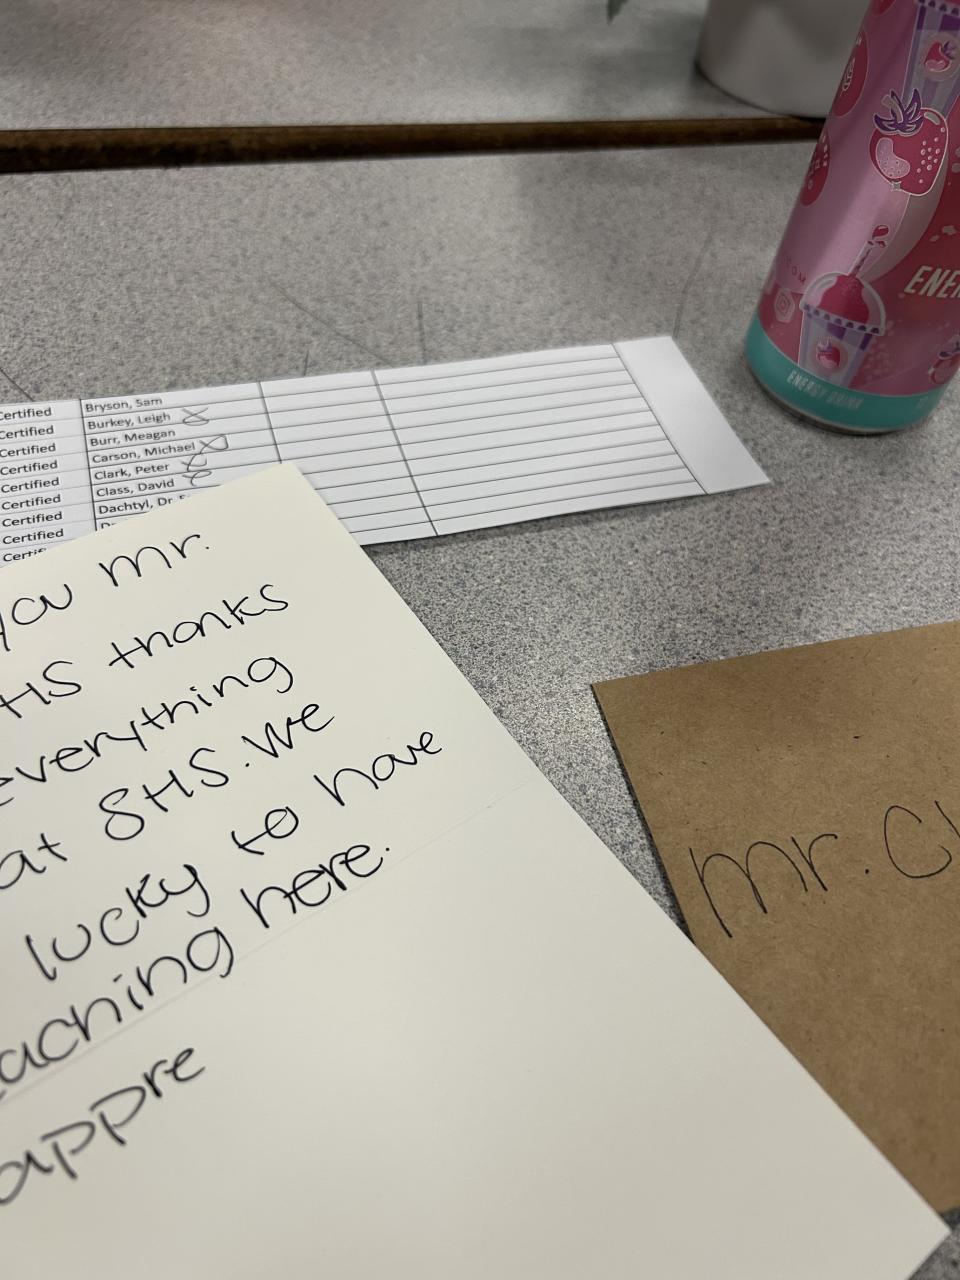 Certified Bryson, Sam
Certified Burkey, Leigh
Certified Burr, Meagan
Certified Carson, Michael
Certified Clark, Peter
Certified Class, David
Certified Dachtyl, Dr
Certified
you Mr.
SHS thanks
everything
at SHS. We
lucky to have
eaching here.
appre
Mr. Cl
ENER
ENERGY DRINK